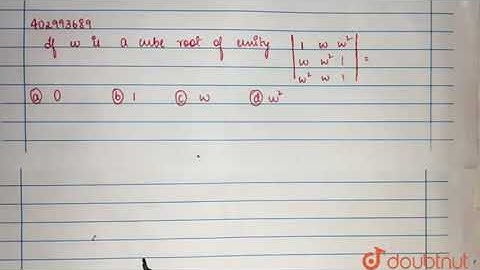 402993689
If w is a cube root of unity | 1 w w² |
| w w² 1 | =
| w² w 1 |
ⓐ 0 ⓑ 1 ⓒ w ⓓ w²
doubtnut